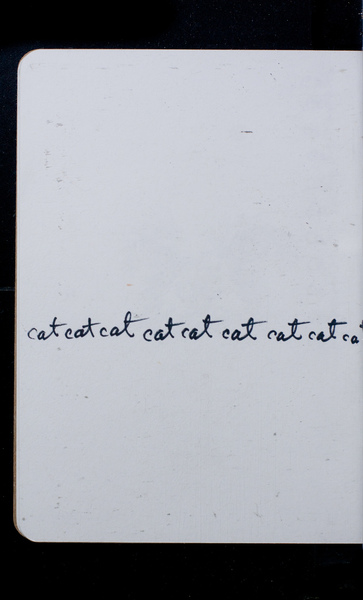 cat cat cat cat cat cat cat cat ca